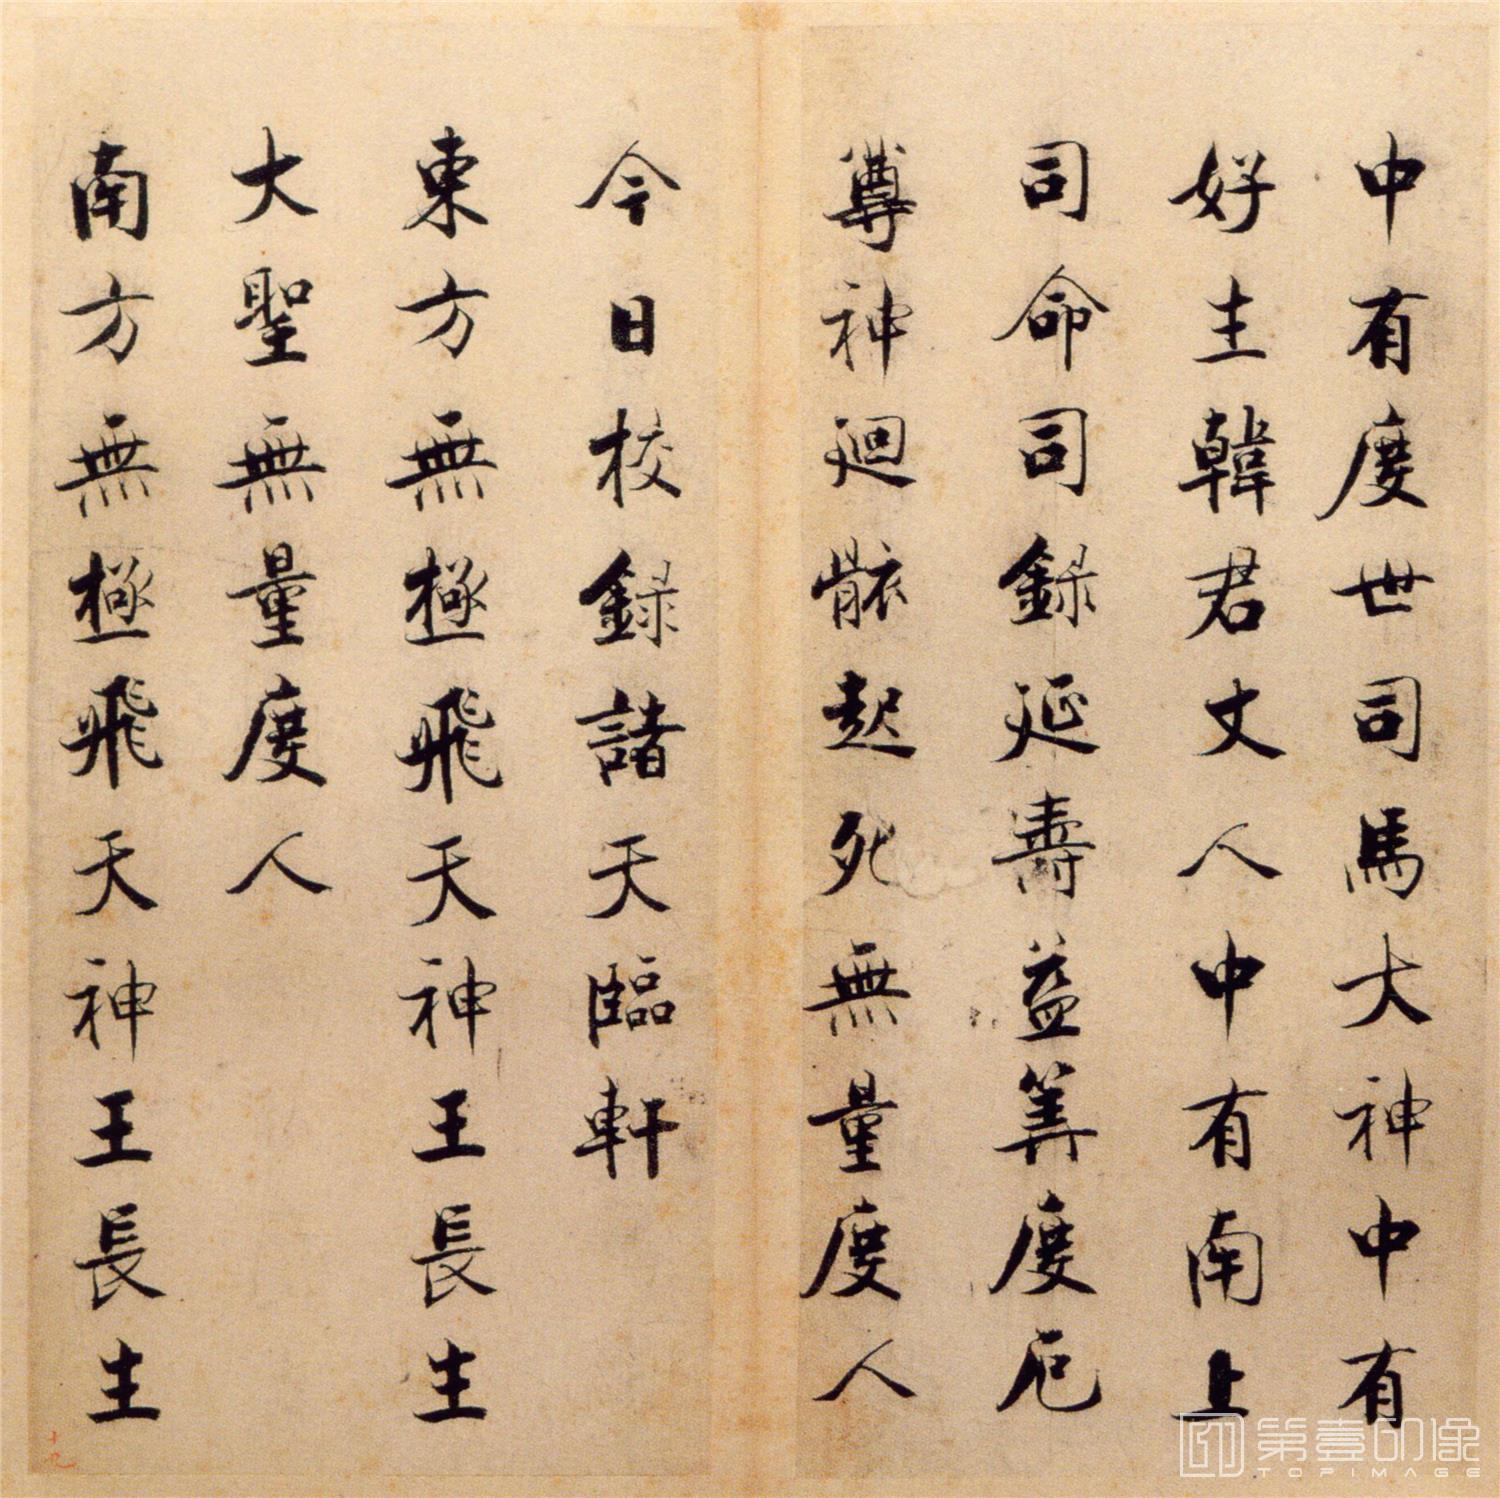 中有度世司馬大神中有
好主韓君丈人中有南上
司命司錄延壽益筭度厄
尊神迴骸起死無量度人
今日校錄諸天臨軒
東方無極飛天神王長主
大聖無量度人
南方無極飛天神王長主
十九
第壹印像
TOPIMAGE